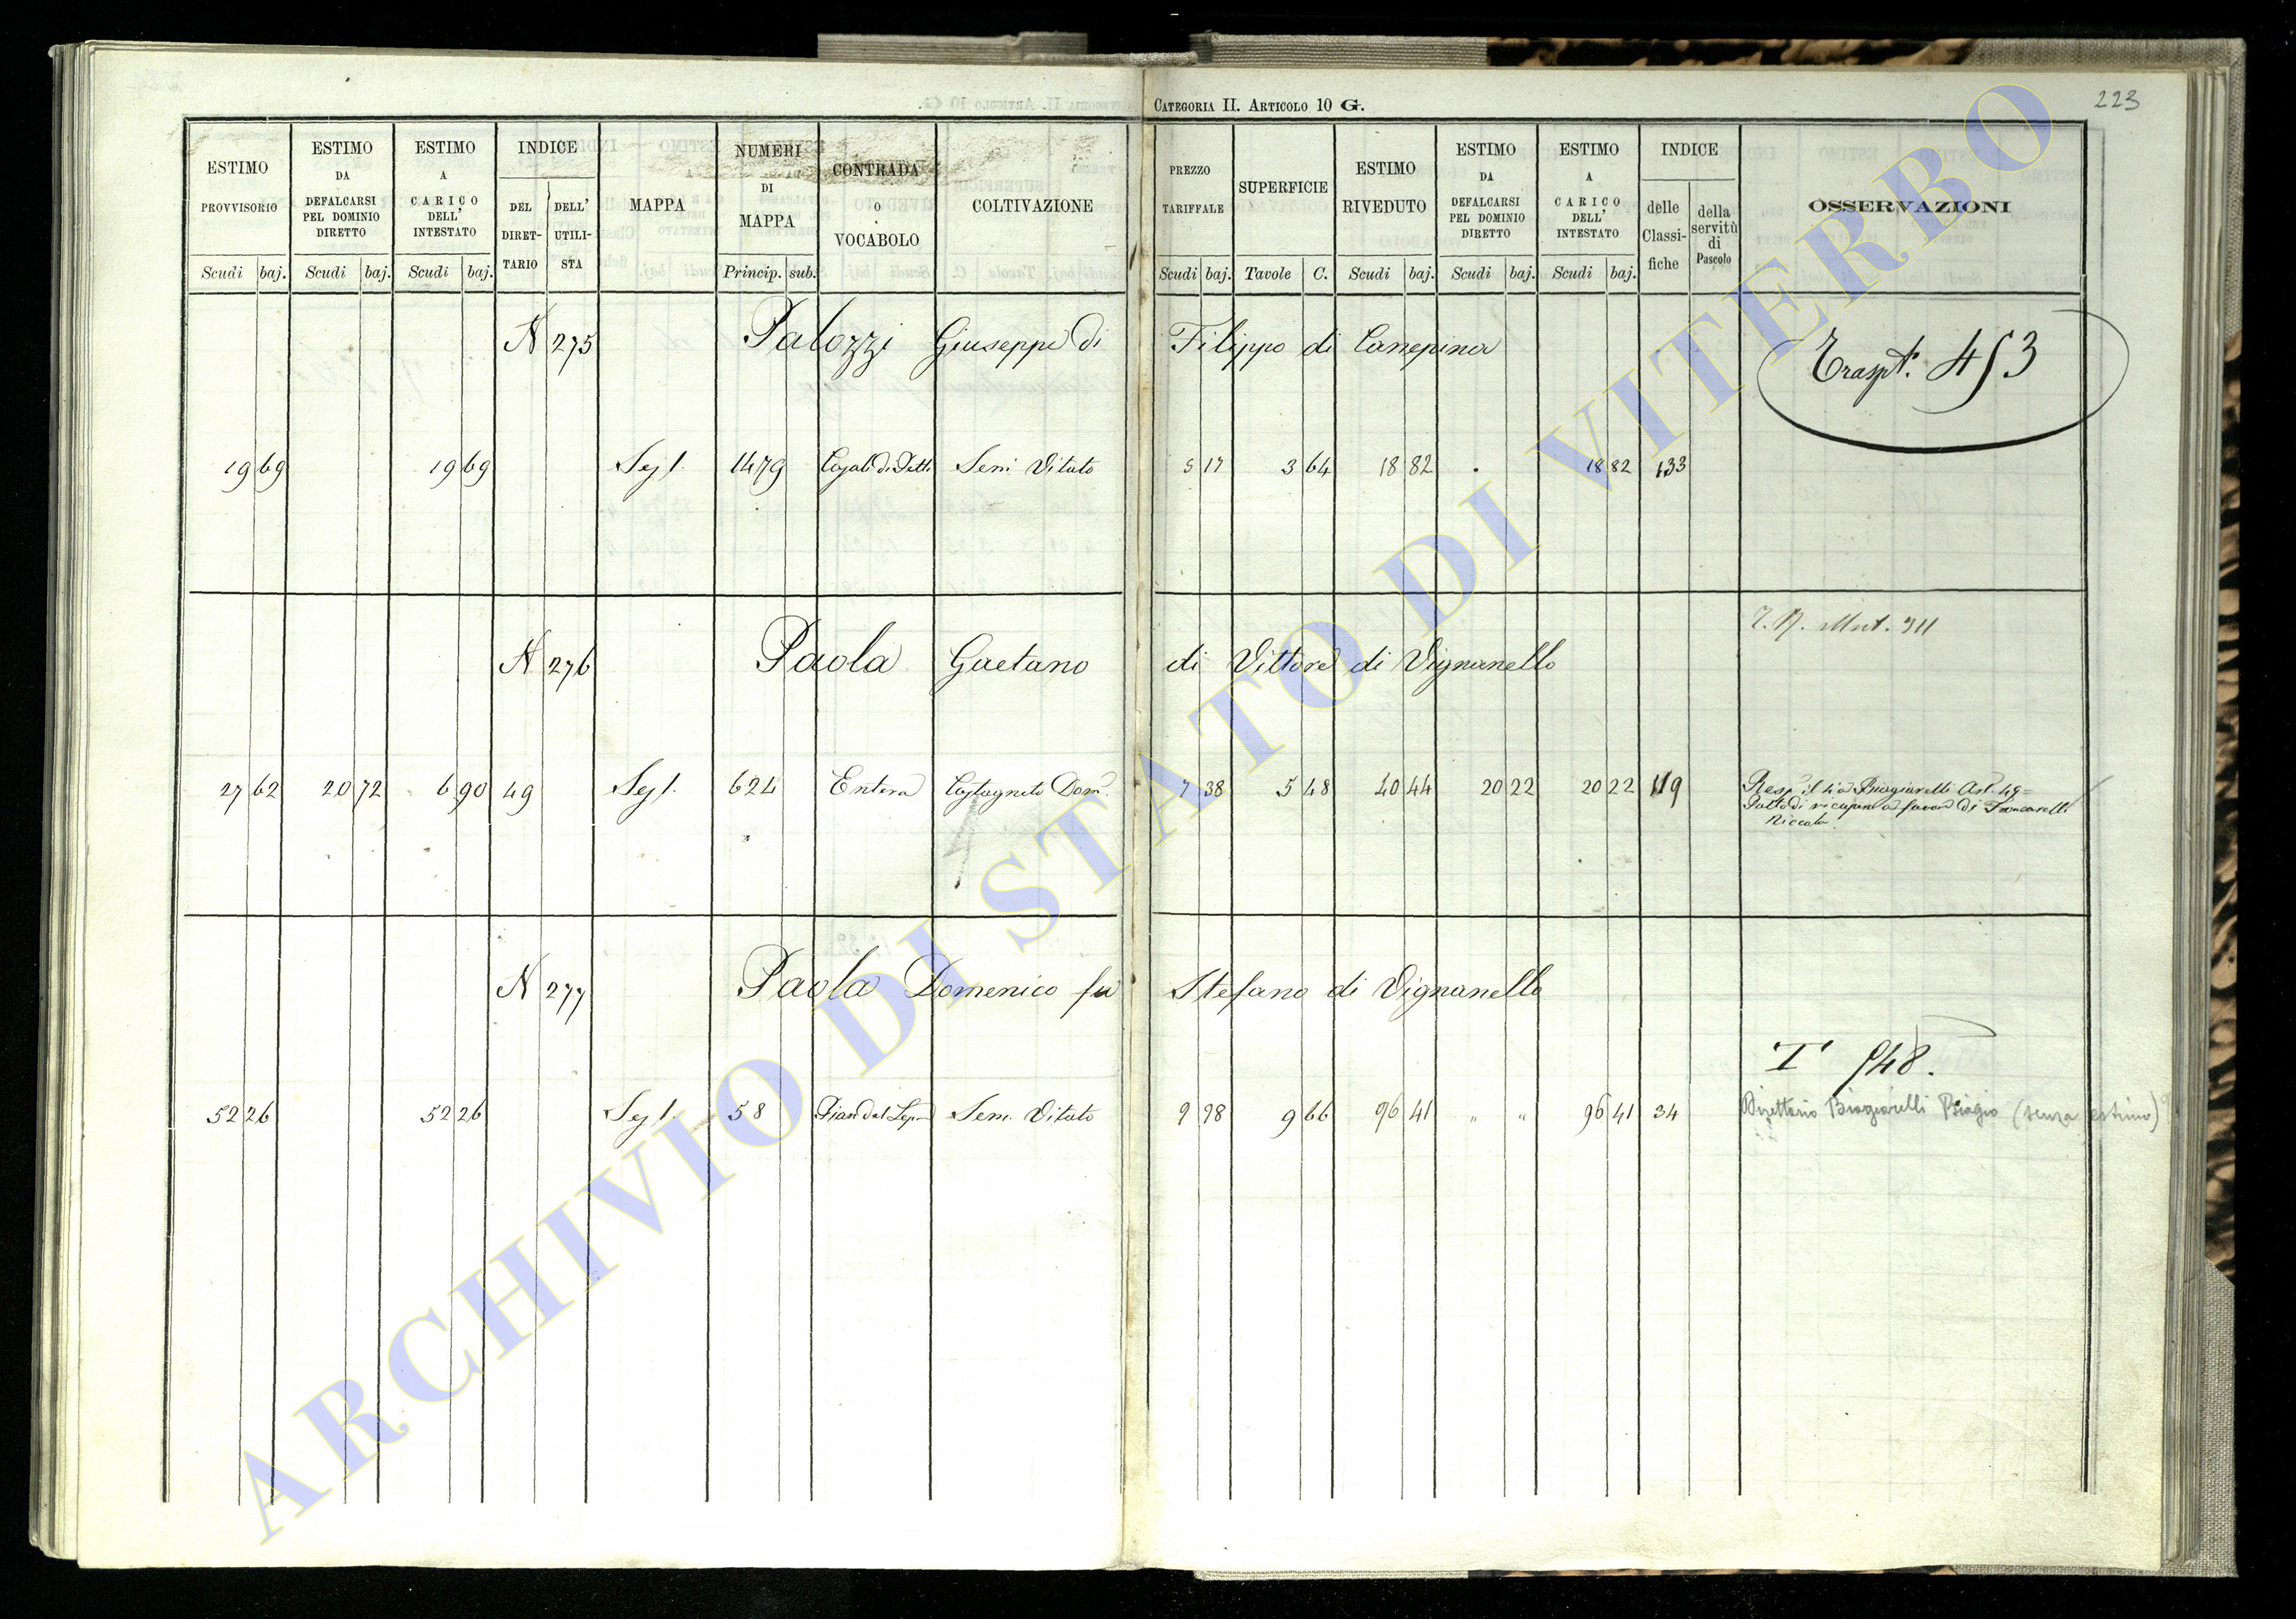 CATEGORIA II. ARTICOLO 10 G.
223
ESTIMO PROVVISORIO
ESTIMO DA DEFALCARSI PEL DOMINIO DIRETTO
ESTIMO A CARICO DELL' INTESTATO
INDICE
DEL DIRET-TARIO
DELL' UTILI-STA
MAPPA
NUMERI DI MAPPA
CONTRADA O VOCABOLO
COLTIVAZIONE
PREZZO TARIFFALE
SUPERFICIE
ESTIMO RIVEDUTO
ESTIMO DA DEFALCARSI PEL DOMINIO DIRETTO
ESTIMO A CARICO DELL' INTESTATO
INDICE
delle Classi-fiche
della servitù di Pascolo
OSSERVAZIONI
Scudi baj. Scudi baj. Scudi baj. Princip. sub. Scudi baj. Tavole C. Scudi baj. Scudi baj. Scudi baj.
N 275 Palozzi Giuseppe di Filippo di Canepina
Traspt. 453
19 69 19 69 Sez I. 1479 Sem Vitato 5 17 3 64 18 82 18 82 133
T. N. Mut. 311
N 276 Paola Gaetano di Vittore di Vignanello
27 62 20 72 6 90 49 Sez I. 624 Entera Castagneto Dom. 7 38 5 48 40 44 20 22 20 22 119 Biagiarelli Art. 49
Patto di ricupera a favore di
N 277 Paola Domenico fu Stefano di Vignanello
T 948.
52 26 52 26 Sez I. 58 Sem. Vitato 9 98 9 66 96 41 " " 96 41 34 Direttario Biagiarelli Biagio (senza estimo)
ARCHIVIO DI STATO DI VITERBO